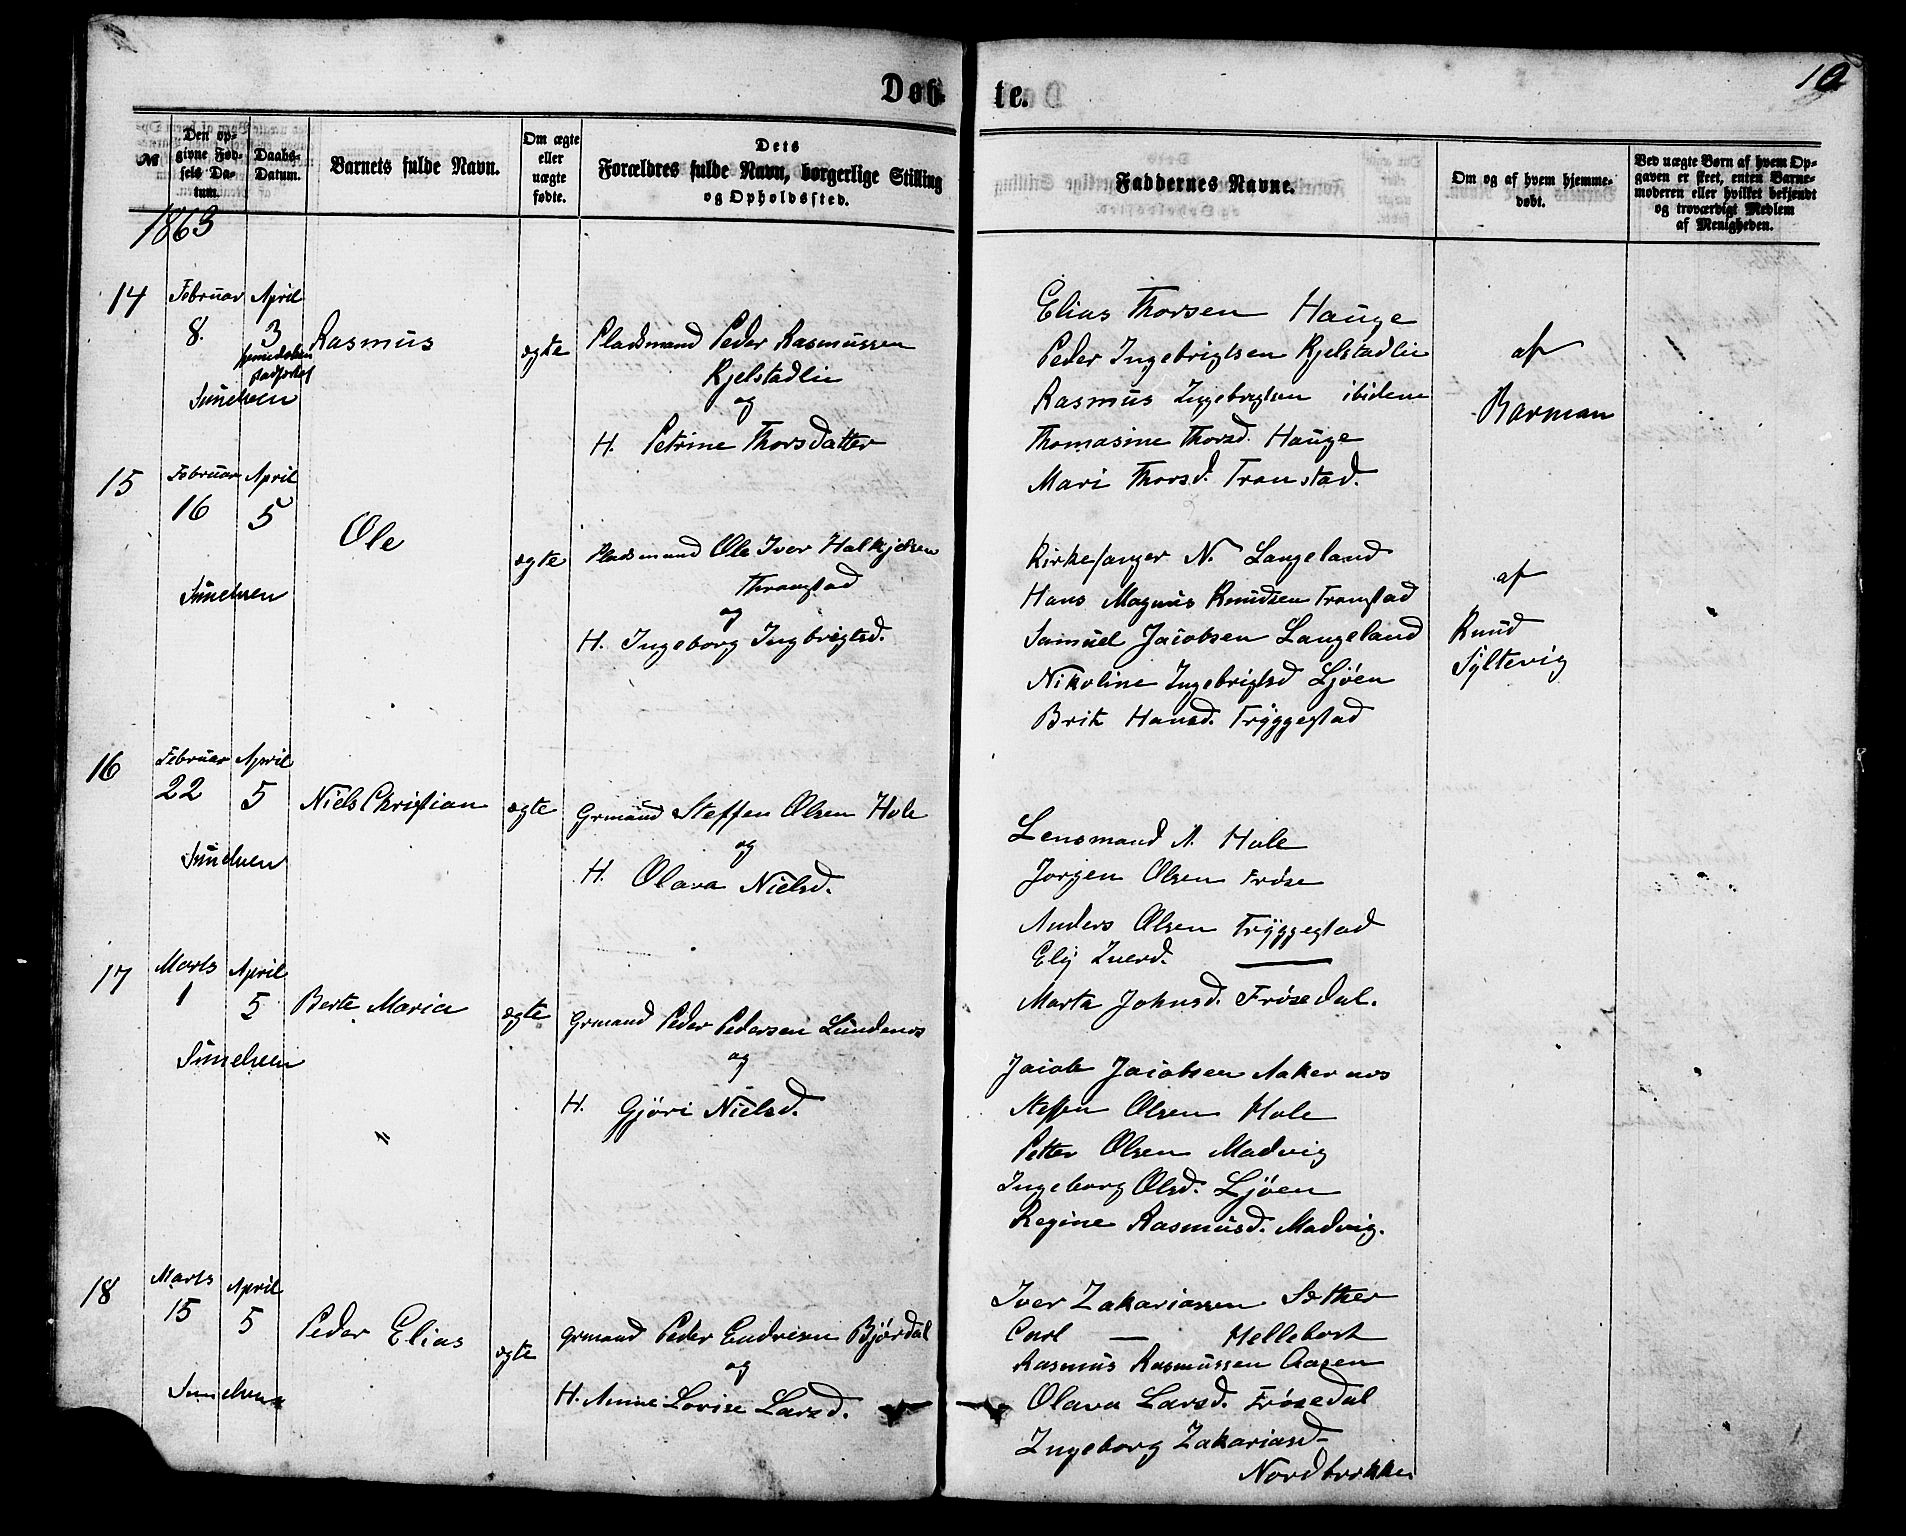 Døb te. 10
№
Den opgivne Fødsels Datum.
Daabs-Datum.
Barnets fulde Navn.
Om ægte eller uægte fødte.
Dets Forældres fulde Navn, borgerlige Stilling og Opholdssted.
Faddernes Navne.
Om og af hvem hjemmedøbt.
Ved uægte Børn af hvem Opgaven er skeet, enten Barnemoderen eller hvilket bekjendt og troværdigt Medlem af Menigheden.
1863
14 Februar April
8. 3 Rasmus ægte Pladsmand Peder Rasmussen
Kjelstadlie
og
H. Petrine Thorsdatter
Sunelven
Elias Thorsen Hauge
Peder Ingebrigtsen Kjelstadlie
Rasmus Ingebrigtsen ibidem
Thomasine Thorsd. Hauge
Mari Thorsd. Tronstad.
af
Barman
15 Februar April
16 5
Ole ægte Pladsmand Ole Iver Halkjelsen
Thronstad
og
H. Ingeborg Ingbrigtsd.
Sunelven
Kirkesanger N. Langeland
Hans Magnus Knudsen Tronstad
Samuel Jacobsen Langeland
Nikoline Ingebrigtsd Ljøen
Brit Hansd. Tryggestad
af
Knud
Syltevig
16 Februar April
22 5 Niels Christian ægte Grmand Steffen Olsen Hole
og
H. Olava Nielsd.
Sunelven
Lensmand A. Hole
Jørgen Olsen Frøse
Anders Olsen Tryggestad
Eli Iverd. —
Marta Johnsd. Frøsedal.
17 Marts April
1 5 Berte Maria ægte Grmand Peder Pedersen Lundenes
og
H. Gjøri Nielsd.
Sunelven
Jacob Jacobsen Aakernes
Steffen Olsen Hole
Petter Olsen Madvig
Ingeborg Olsd. Ljøen
Regine Rasmusd. Madvig.
18 Marts April
15 5 Peder Elias ægte Grmand Peder Endresen Bjørdal
og
H. Anne Lovise Larsd.
Sunelven
Iver Zakariassen Sæther
Carl — Hellebost
Rasmus Rasmussen Aasen
Olava Larsd. Frøsedal
Ingeborg Zakariasd
Nordbrekken